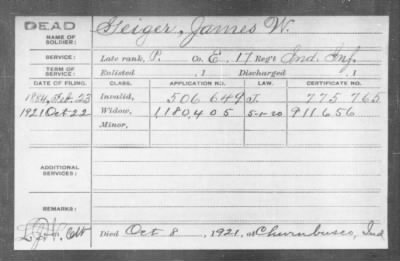 DEAD
NAME OF SOLDIER:
Geiger, James W.
SERVICE:
Late rank, P. Co. E, 17 Reg't Ind. Inf.
TERM OF SERVICE:
Enlisted , 1 Discharged , 1
DATE OF FILING. CLASS. APPLICATION NO. LAW. CERTIFICATE NO.
1884, Feb. 23 Invalid, 506 649 J. 775 765
1921 Oct 22 Widow, 1,180,405 5-1-20 911656
Minor,
ADDITIONAL SERVICES:
REMARKS:
Died Oct 8, 1921, at Churubusco, Ind